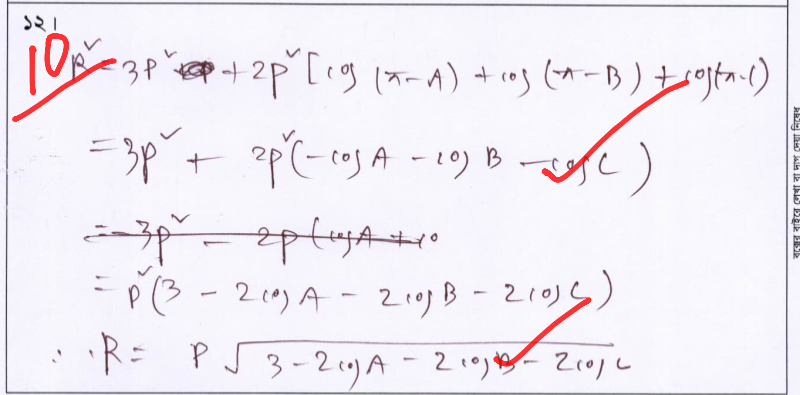 ১২।
10
R² = 3P² + 2P² [cos (π-A) + cos (π-B) + cos(π-C)
= 3P² + 2P² (-cosA - cosB - cosC)
= 3P² - 2P (cosA + co
= P² (3 - 2cosA - 2cosB - 2cosC)
∴ R = P √3-2cosA - 2cosB - 2cosC
বক্সের বাইরে লেখা বা দাগ দেয়া নিষেধ